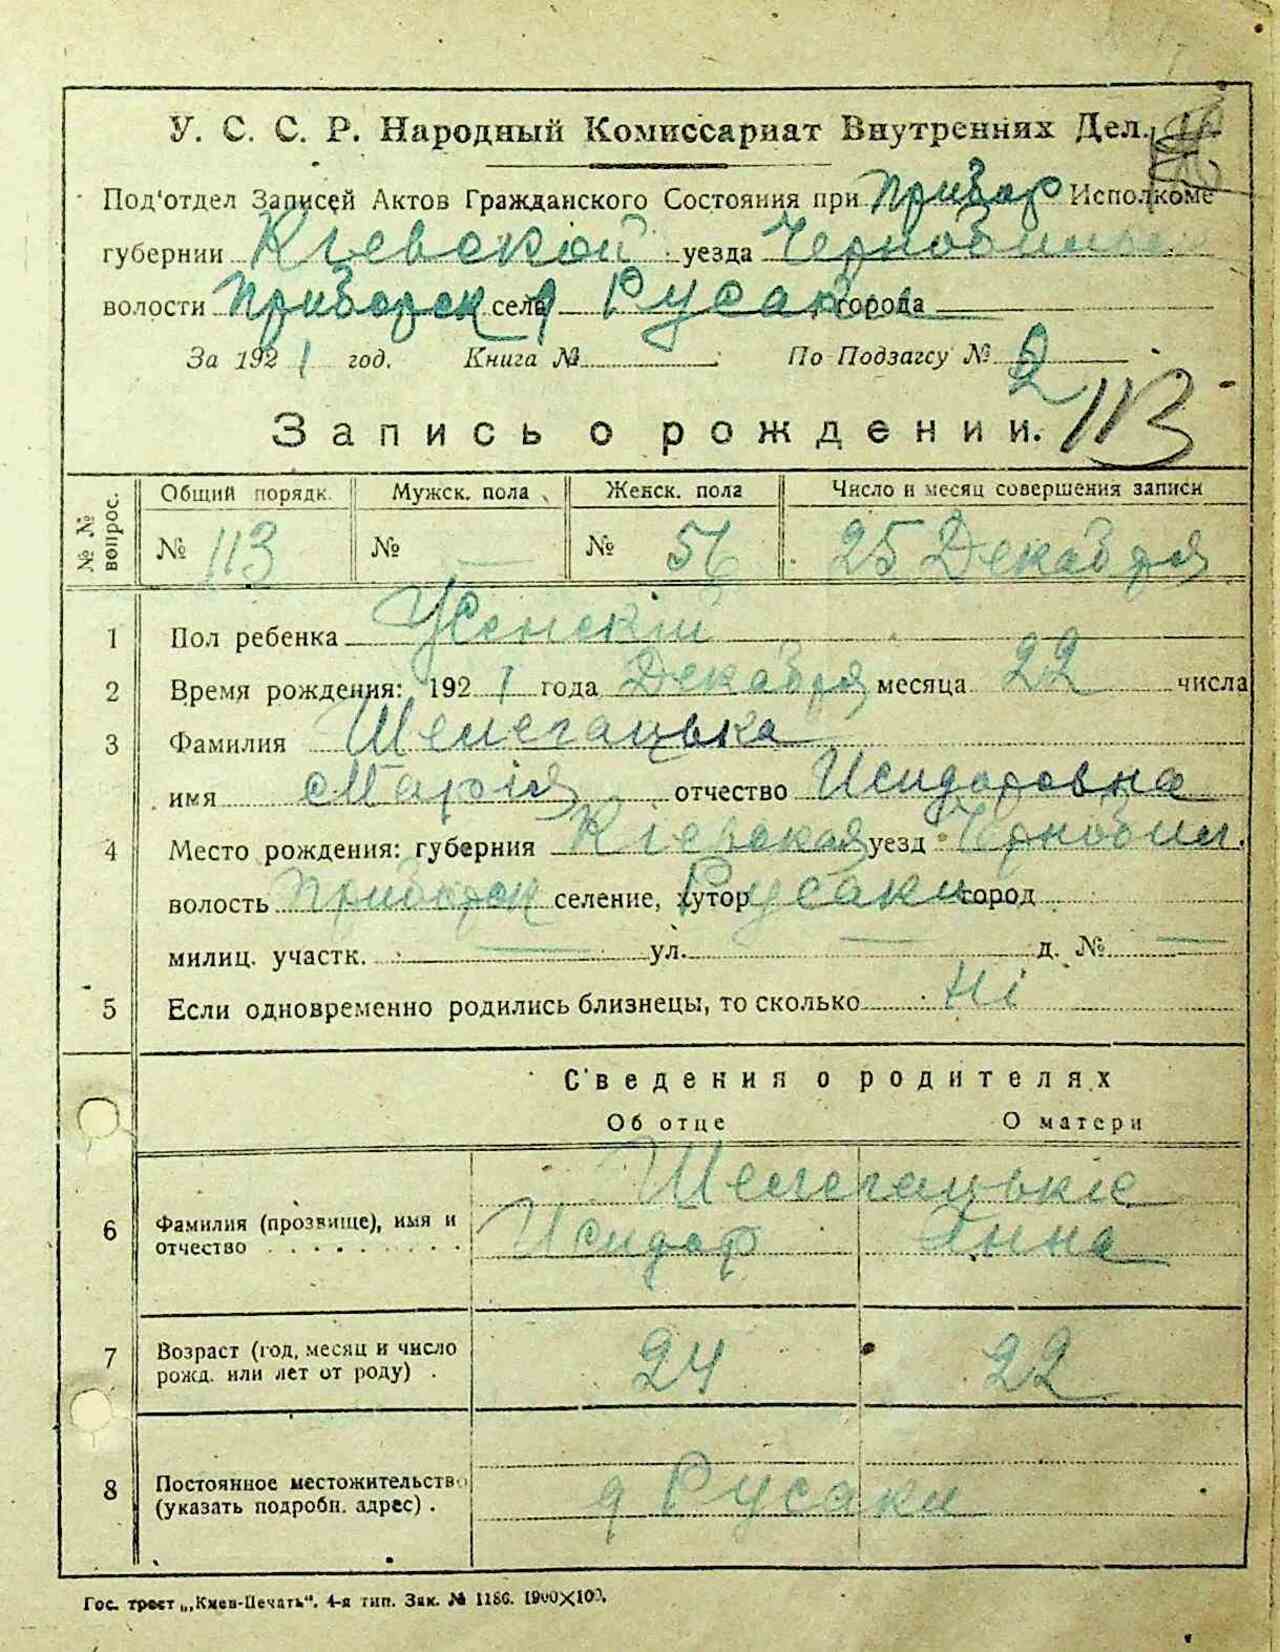 У. С. С. Р. Народный Комиссариат Внутренних Дел.
Под'отдел Записей Актов Гражданского Состояния при Прибор Исполкоме
губернии Кіевской уезда Чернобильс
волости Приборск село д Русаки города
За 1921 год. Книга № По Подзагсу № 2
Запись о рождении. 113
№ № вопрос. Общий порядк. Мужск. пола Женск. пола Число и месяц совершения записи
№ 113 № — № 56 25 Декабря
1 Пол ребенка Женскій
2 Время рождения: 1921 года Декабря месяца 22 числа
3 Фамилия Шепегацька
имя Марія отчество Исидоровна
4 Место рождения: губерния Кіевская уезд Чернобил.
волость Приборск селение, хутор Русаки город
милиц. участк. — ул. — д. № —
5 Если одновременно родились близнецы, то сколько Ні
Сведения о родителях
Об отце О матери
Шепегацькіе
6 Фамилия (прозвище), имя и отчество Исидор Анна
7 Возраст (год, месяц и число рожд. или лет от роду) . 24 22
8 Постоянное местожительство (указать подробн. адрес) . д Русаки
Гос. трест „Киев-Печать“. 4-я тип. Зак. № 1186. 1900X100.